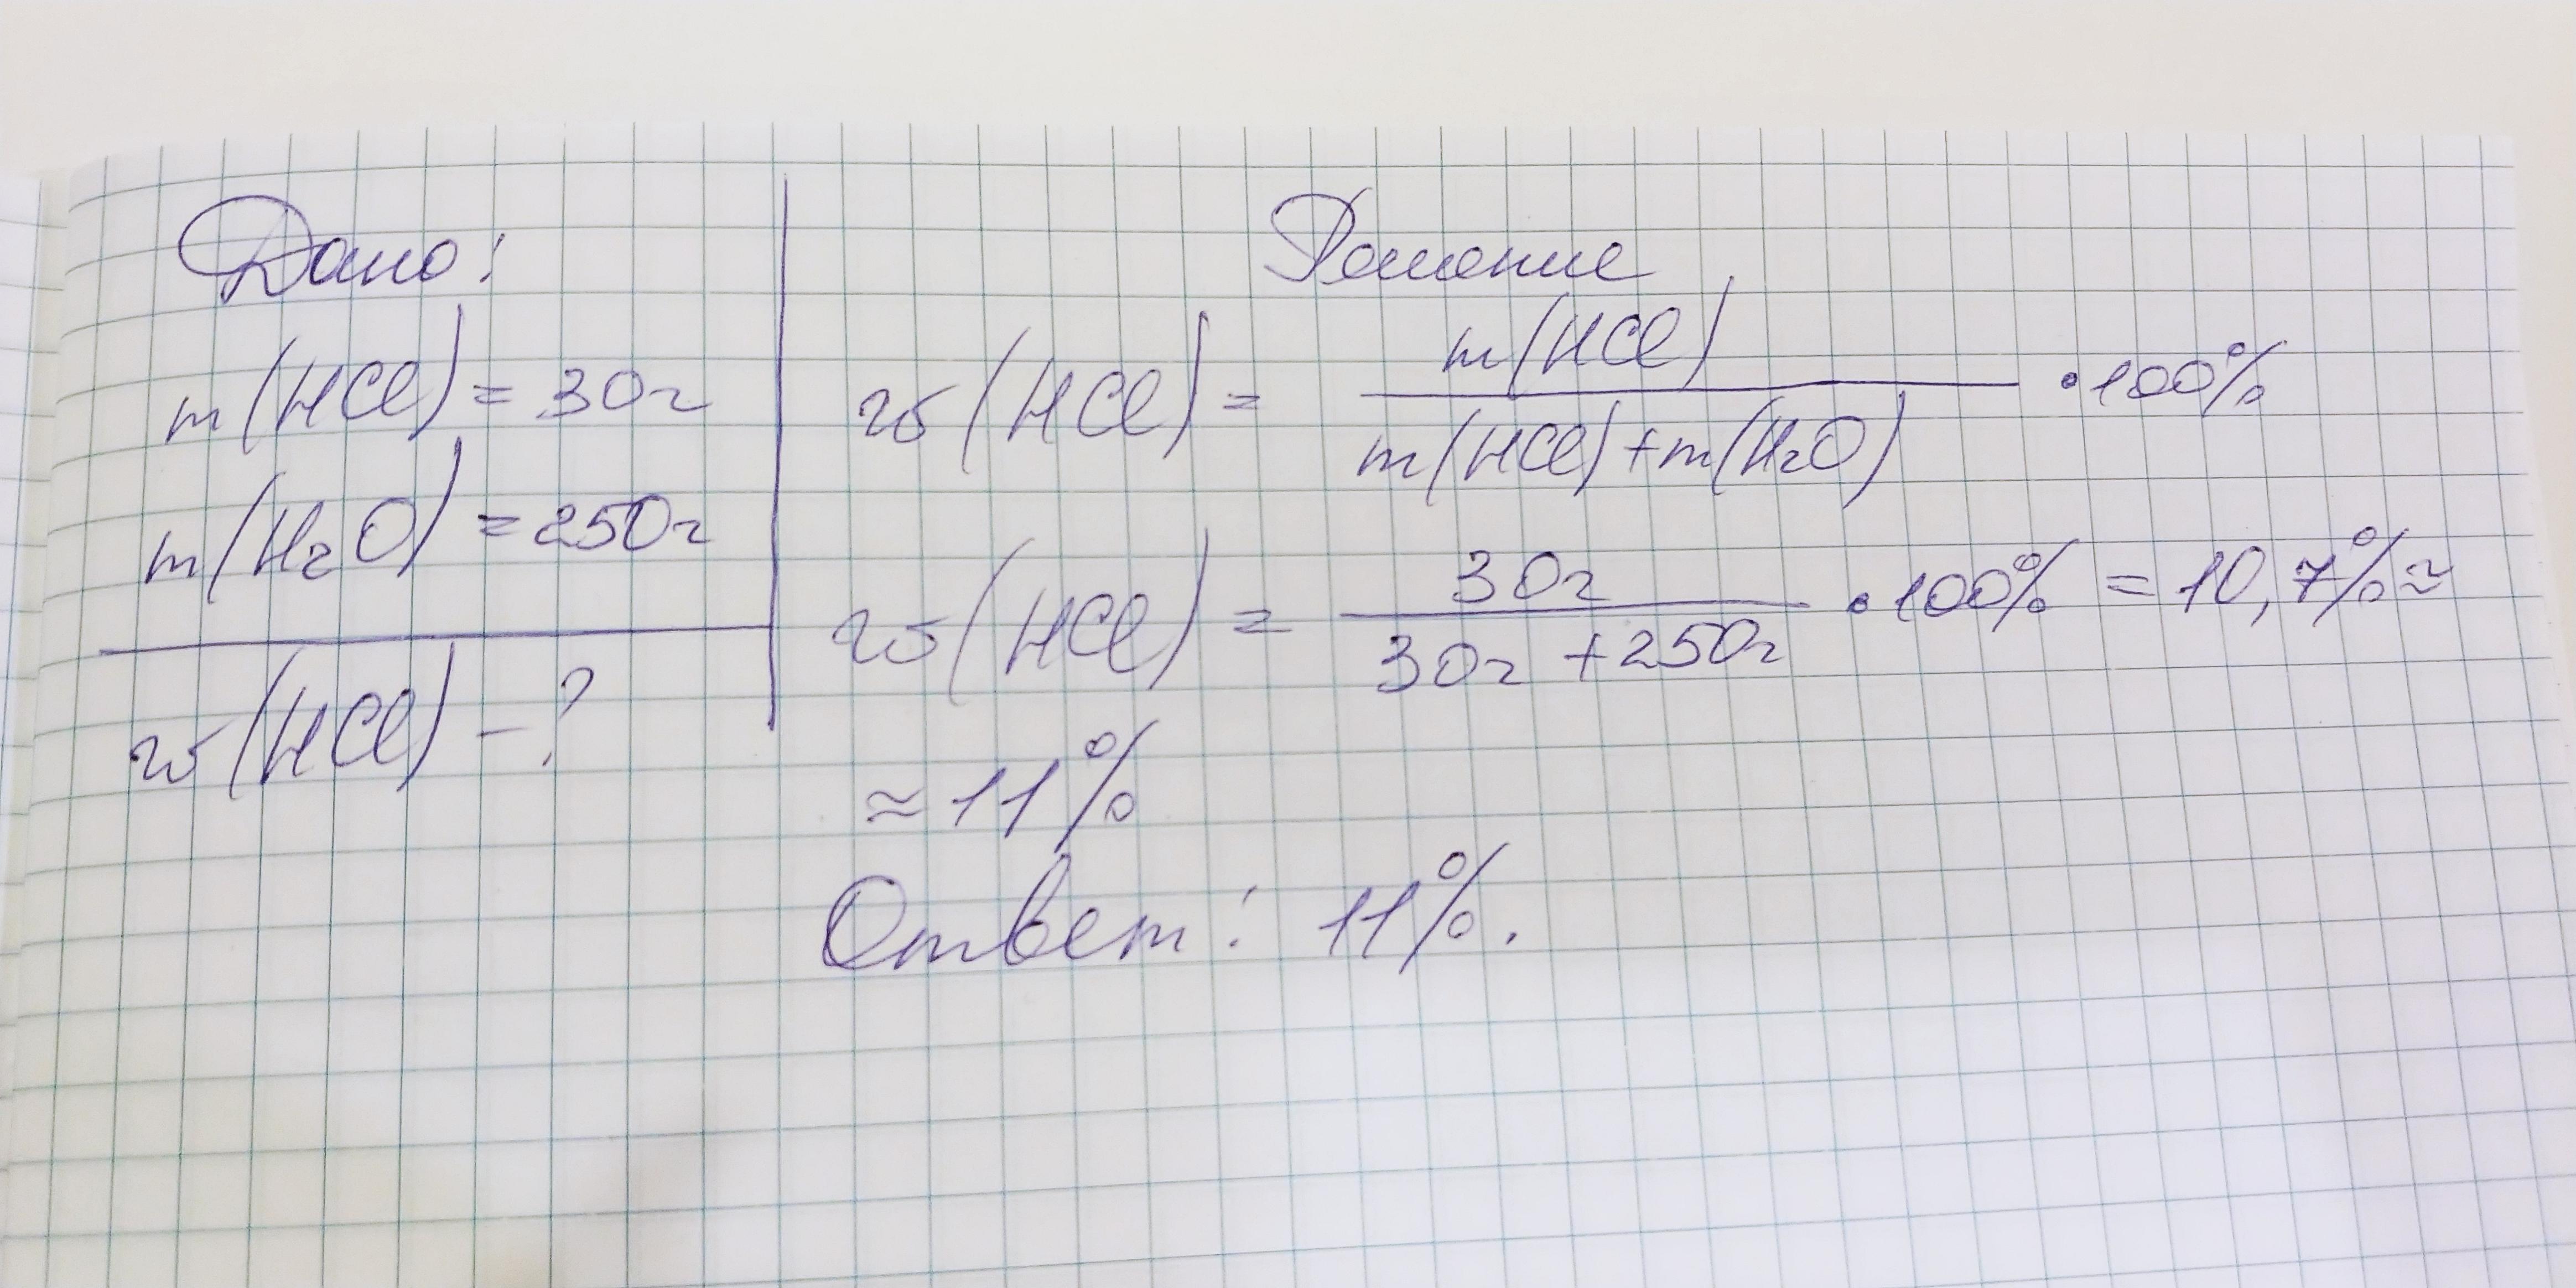 Дано:
m(HCl) = 30г
m(H₂O) = 250г
w(HCl) - ?
Решение
w(HCl) = m(HCl) / m(HCl)+m(H₂O) • 100%
w(HCl) = 30г / 30г + 250г • 100% = 10,7% ≈
≈ 11%
Ответ: 11%.